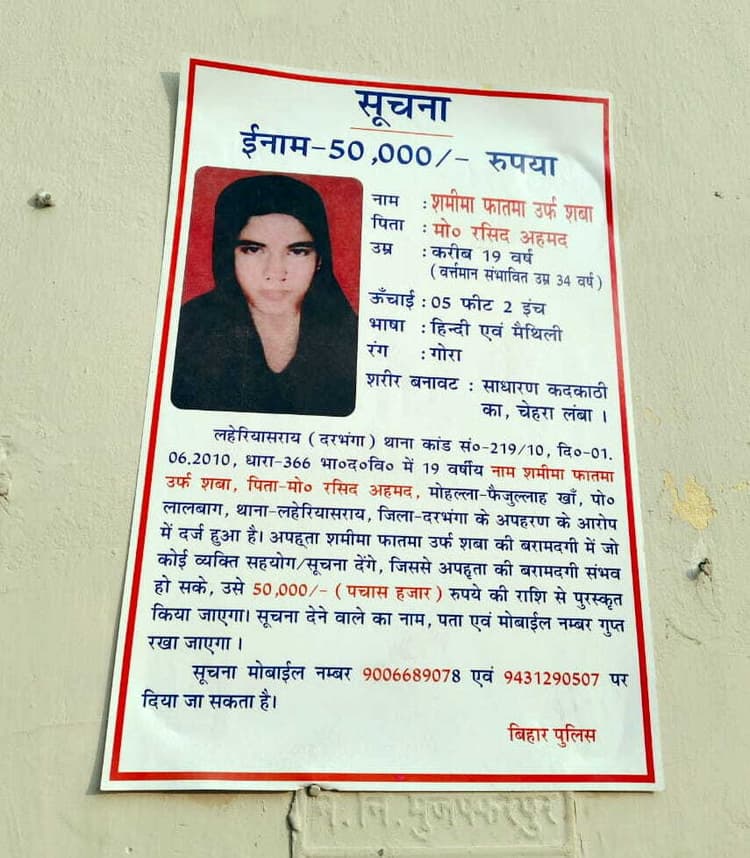 सूचना
ईनाम-50,000/- रुपया
नाम : शमीमा फातमा उर्फ शबा
पिता : मो० रसिद अहमद
उम्र : करीब 19 वर्ष
(वर्त्तमान संभावित उम्र 34 वर्ष)
ऊँचाई : 05 फीट 2 इंच
भाषा : हिन्दी एवं मैथिली
रंग : गोरा
शरीर बनावट : साधारण कदकाठी
का, चेहरा लंबा ।
लहेरियासराय (दरभंगा) थाना कांड सं०-219/10, दि०-01.
06.2010, धारा-366 भा०द०वि० में 19 वर्षीय नाम शमीमा फातमा
उर्फ शबा, पिता-मो० रसिद अहमद, मोहल्ला-फैजुल्लाह खाँ, पो०
लालबाग, थाना-लहेरियासराय, जिला-दरभंगा के अपहरण के आरोप
में दर्ज हुआ है। अपहृता शमीमा फातमा उर्फ शबा की बरामदगी में जो
कोई व्यक्ति सहयोग/सूचना देंगे, जिससे अपहृता की बरामदगी संभव
हो सके, उसे 50,000/- (पचास हजार) रुपये की राशि से पुरस्कृत
किया जाएगा। सूचना देने वाले का नाम, पता एवं मोबाईल नम्बर गुप्त
रखा जाएगा ।
सूचना मोबाईल नम्बर 9006689078 एवं 9431290507 पर
दिया जा सकता है।
बिहार पुलिस
न. नि. मुजफ्फरपुर